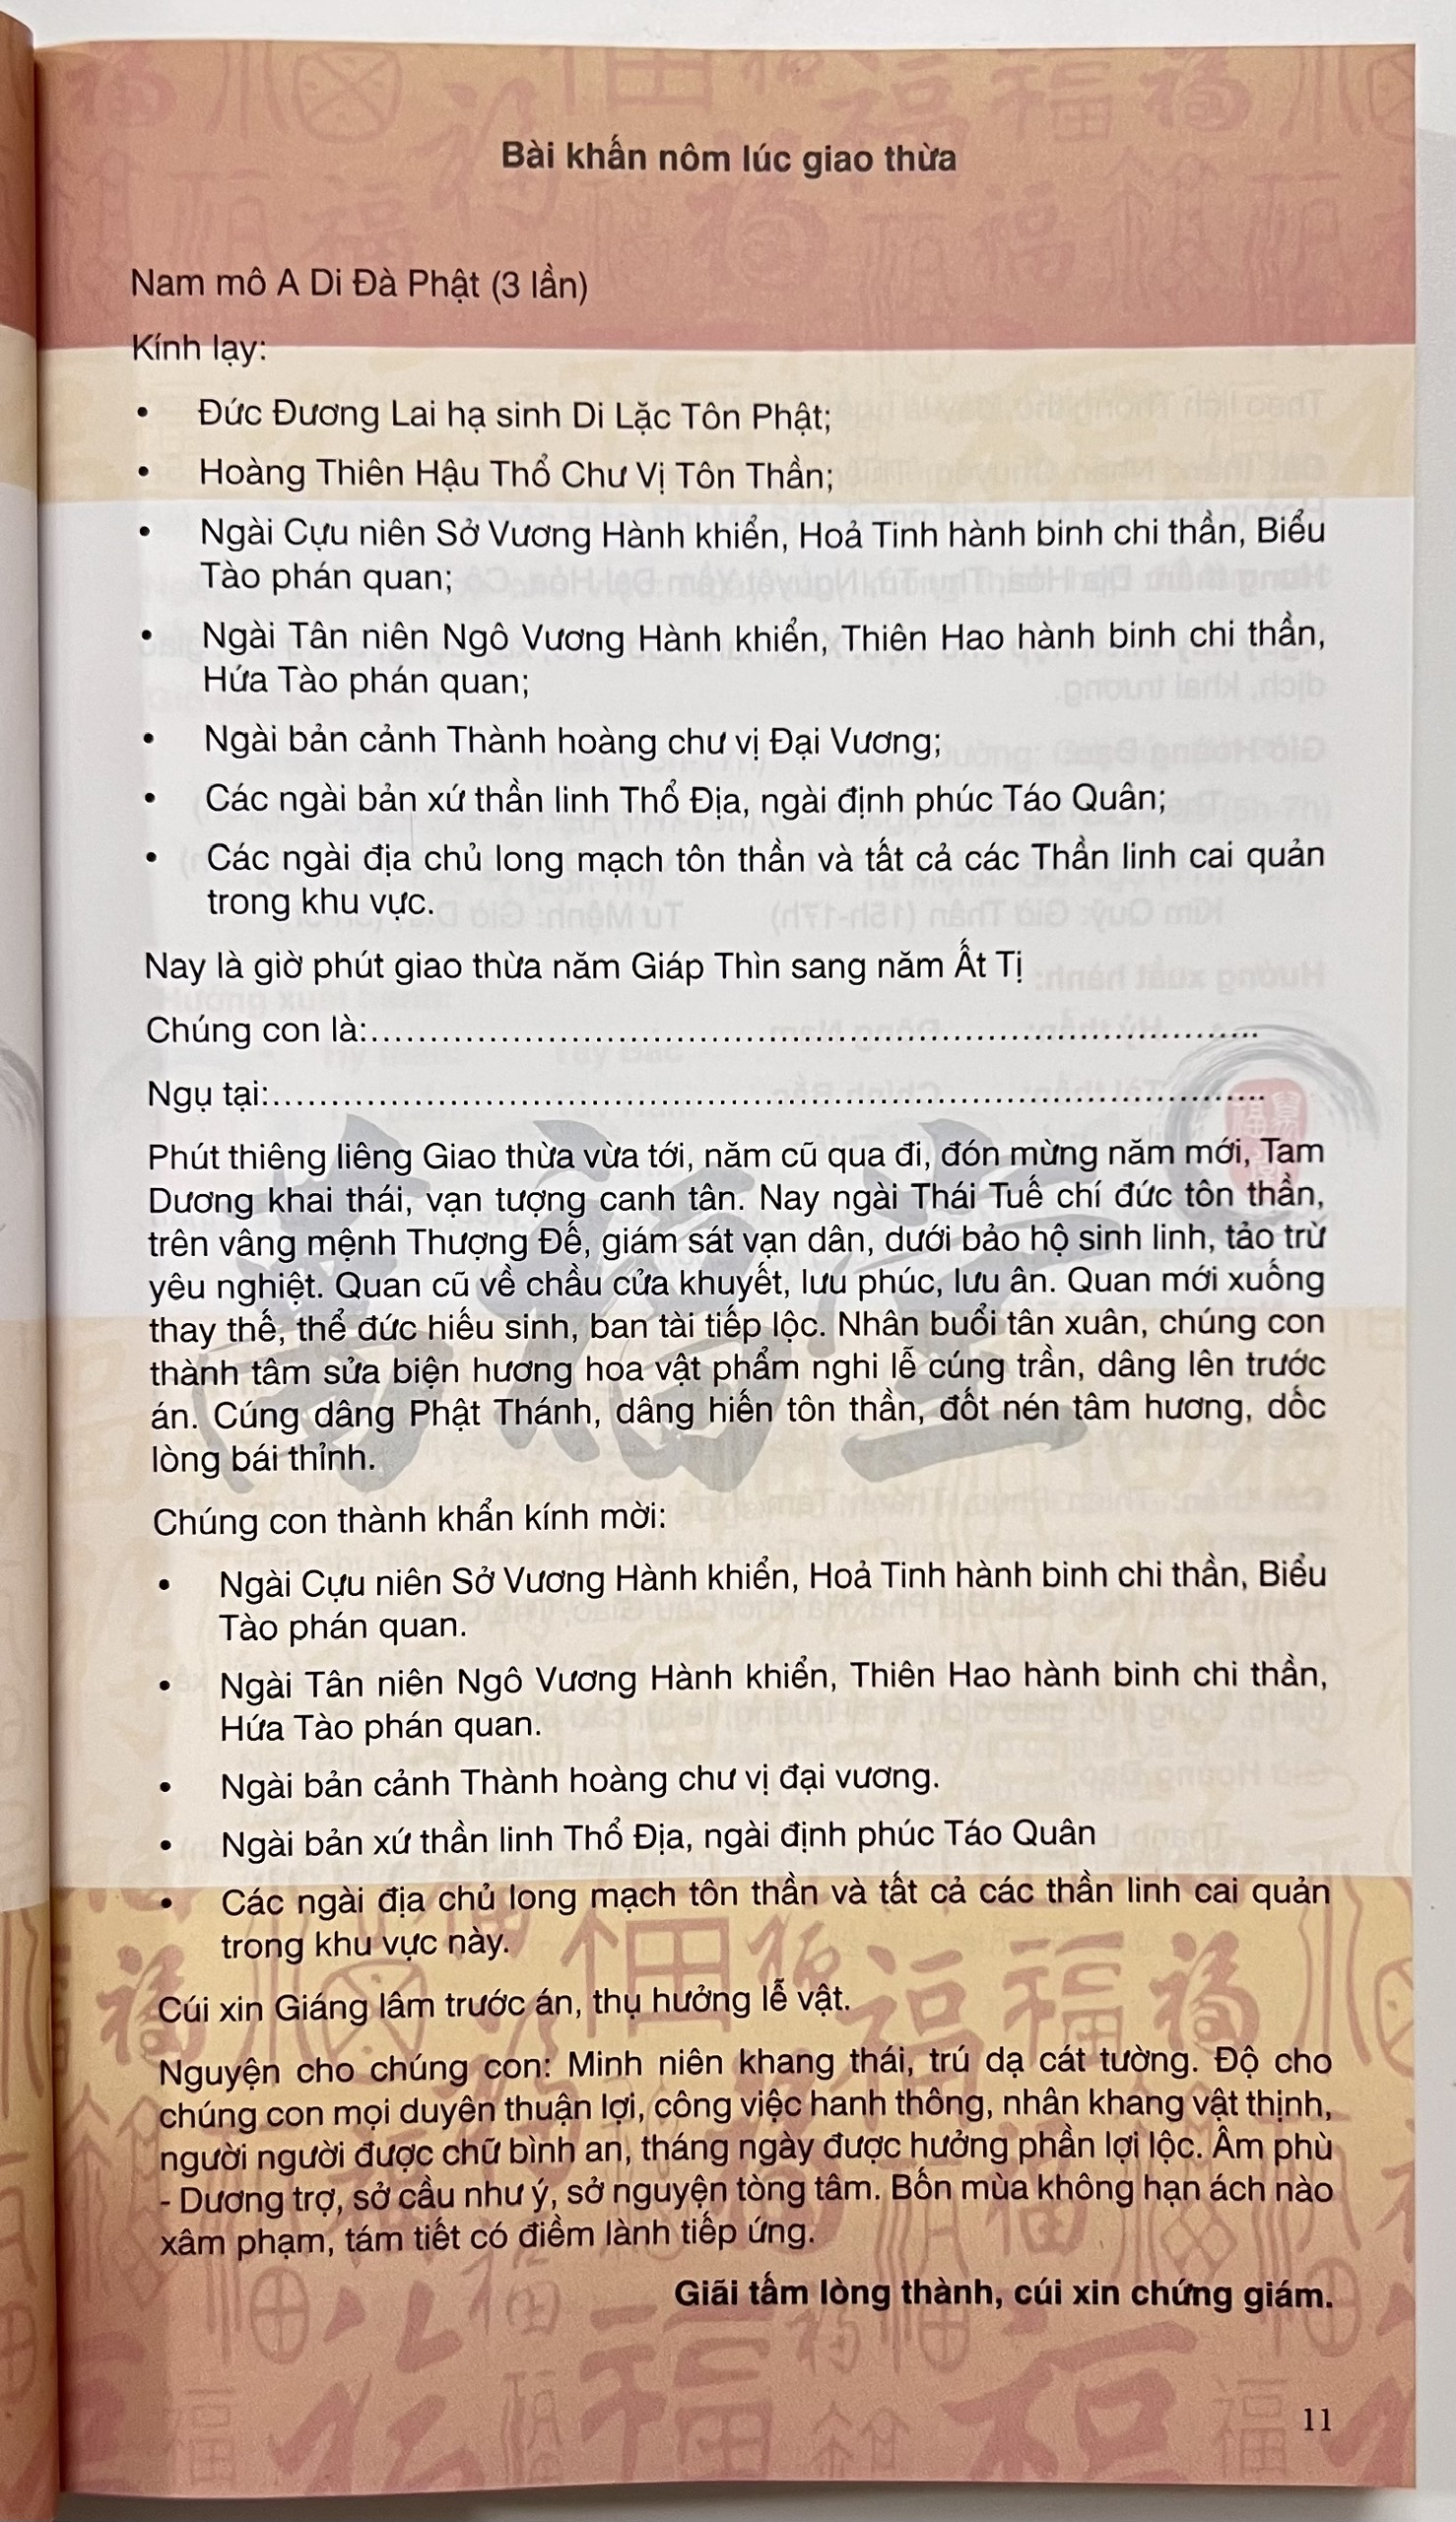 Bài khấn nôm lúc giao thừa
Nam mô A Di Đà Phật (3 lần)
Kính lạy:
• Đức Đương Lai hạ sinh Di Lặc Tôn Phật;
• Hoàng Thiên Hậu Thổ Chư Vị Tôn Thần;
• Ngài Cựu niên Sở Vương Hành khiển, Hoả Tinh hành binh chi thần, Biểu
Tào phán quan;
• Ngài Tân niên Ngô Vương Hành khiển, Thiên Hao hành binh chi thần,
Hứa Tào phán quan;
• Ngài bản cảnh Thành hoàng chư vị Đại Vương;
• Các ngài bản xứ thần linh Thổ Địa, ngài định phúc Táo Quân;
• Các ngài địa chủ long mạch tôn thần và tất cả các Thần linh cai quản
trong khu vực.
Nay là giờ phút giao thừa năm Giáp Thìn sang năm Ất Tị
Chúng con là:................................................................................
Ngụ tại:................................................................................
Phút thiêng liêng Giao thừa vừa tới, năm cũ qua đi, đón mừng năm mới, Tam
Dương khai thái, vạn tượng canh tân. Nay ngài Thái Tuế chí đức tôn thần,
trên vâng mệnh Thượng Đế, giám sát vạn dân, dưới bảo hộ sinh linh, tảo trừ
yêu nghiệt. Quan cũ về chầu cửa khuyết, lưu phúc, lưu ân. Quan mới xuống
thay thế, thể đức hiếu sinh, ban tài tiếp lộc. Nhân buổi tân xuân, chúng con
thành tâm sửa biện hương hoa vật phẩm nghi lễ cúng trần, dâng lên trước
án. Cúng dâng Phật Thánh, dâng hiến tôn thần, đốt nén tâm hương, dốc
lòng bái thỉnh.
Chúng con thành khẩn kính mời:
• Ngài Cựu niên Sở Vương Hành khiển, Hoả Tinh hành binh chi thần, Biểu
Tào phán quan.
• Ngài Tân niên Ngô Vương Hành khiển, Thiên Hao hành binh chi thần,
Hứa Tào phán quan.
• Ngài bản cảnh Thành hoàng chư vị đại vương.
• Ngài bản xứ thần linh Thổ Địa, ngài định phúc Táo Quân
• Các ngài địa chủ long mạch tôn thần và tất cả các thần linh cai quản
trong khu vực này.
Cúi xin Giáng lâm trước án, thụ hưởng lễ vật.
Nguyện cho chúng con: Minh niên khang thái, trú dạ cát tường. Độ cho
chúng con mọi duyên thuận lợi, công việc hanh thông, nhân khang vật thịnh,
người người được chữ bình an, tháng ngày được hưởng phần lợi lộc. Âm phù
- Dương trợ, sở cầu như ý, sở nguyện tòng tâm. Bốn mùa không hạn ách nào
xâm phạm, tám tiết có điềm lành tiếp ứng.
Giãi tấm lòng thành, cúi xin chứng giám.
11